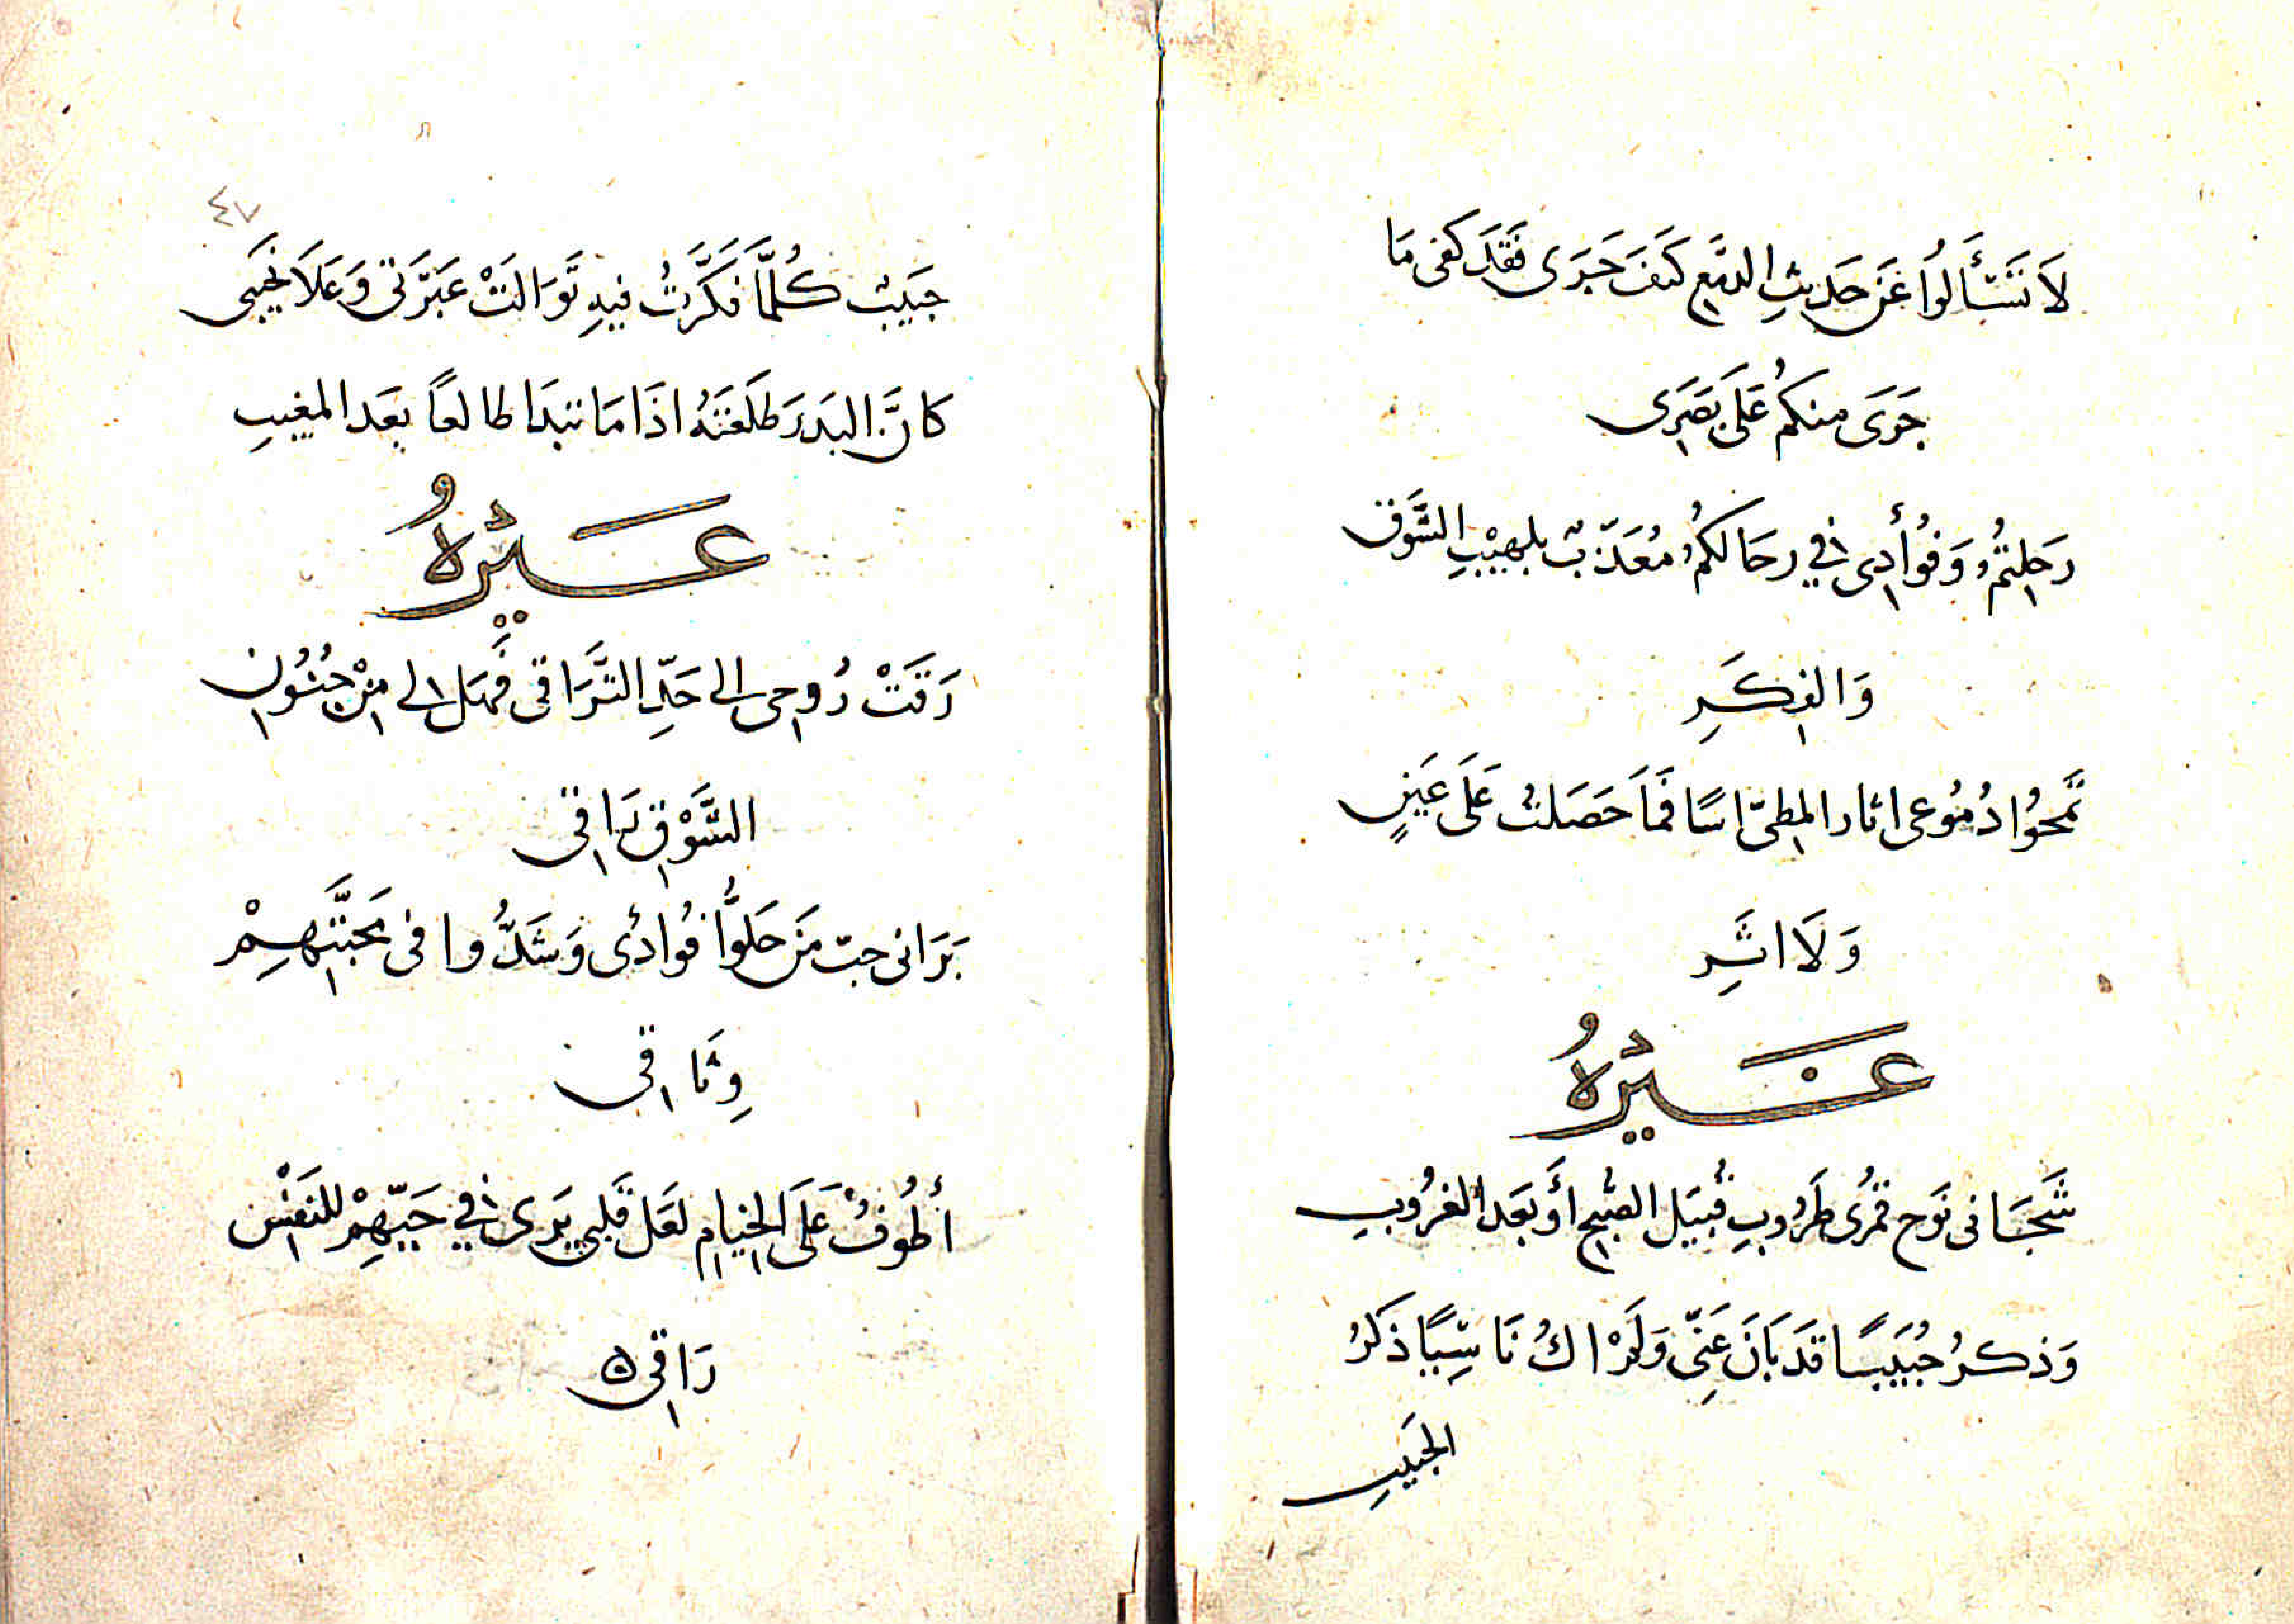 لَا تَسْتَأَلُوا عَنْ حَدِيثِ الدَّمْعِ كَيْفَ جَرَى فَقَدْ كَفَى مَا
جَرَى مِنكُمُ عَلَى بَصَرِى
رَحِلتُمُ وَفُؤَأدِى فِي رحَالكُمُ مُعَذَّبٌ بلهِيْبِ الشَّوق
وَالفِكَرِ
تَمحُوا دُمُوعى اثار المِطىّ اسًا فَمَا حَصَلتُ عَلَى عَيْنٍ
وَلَا اثَرِ
غَيْرُهُ
شَجَانى نَوح قمُرى طَرُوبِ قُبَيَل الصُّبحِ أَو بَعَد الغرُوبِ
وَذكرُ حُبَيبًا قَد بَانَ عَنِّى وَلَمْ اكُ نَاسِيًا ذَكَرُ
الحَبَيبِ
٤٧
حَبَيبٌ كُلمَّا فَكَّرَتُ فيهِ تَوَالَتْ عَبَرَتى وَعَلَا نحَيبى
كَانَّ البَدرَ طَلعَتَهُ اذَا مَا تبَدَا طالعًا بعَد المغيبِ
غَيْرُهُ
رَقَتْ رُوحِى الى حَدِّ التَّرَاقى فَهَل لى مِنْ جُنُونِ
الشَّوْقِ رَاقِى
بَرَانى حبّ مَن حَلوُّا فوُادى وَشَدُّوا فى مَحَبَّتِهِمْ
وِثَاقِى
أطُوفُ عَلَى الِخيَامِ لعَل قَلبى يَرَى فِي حَيّهِمْ للنفَسْ
رَاقِى ه